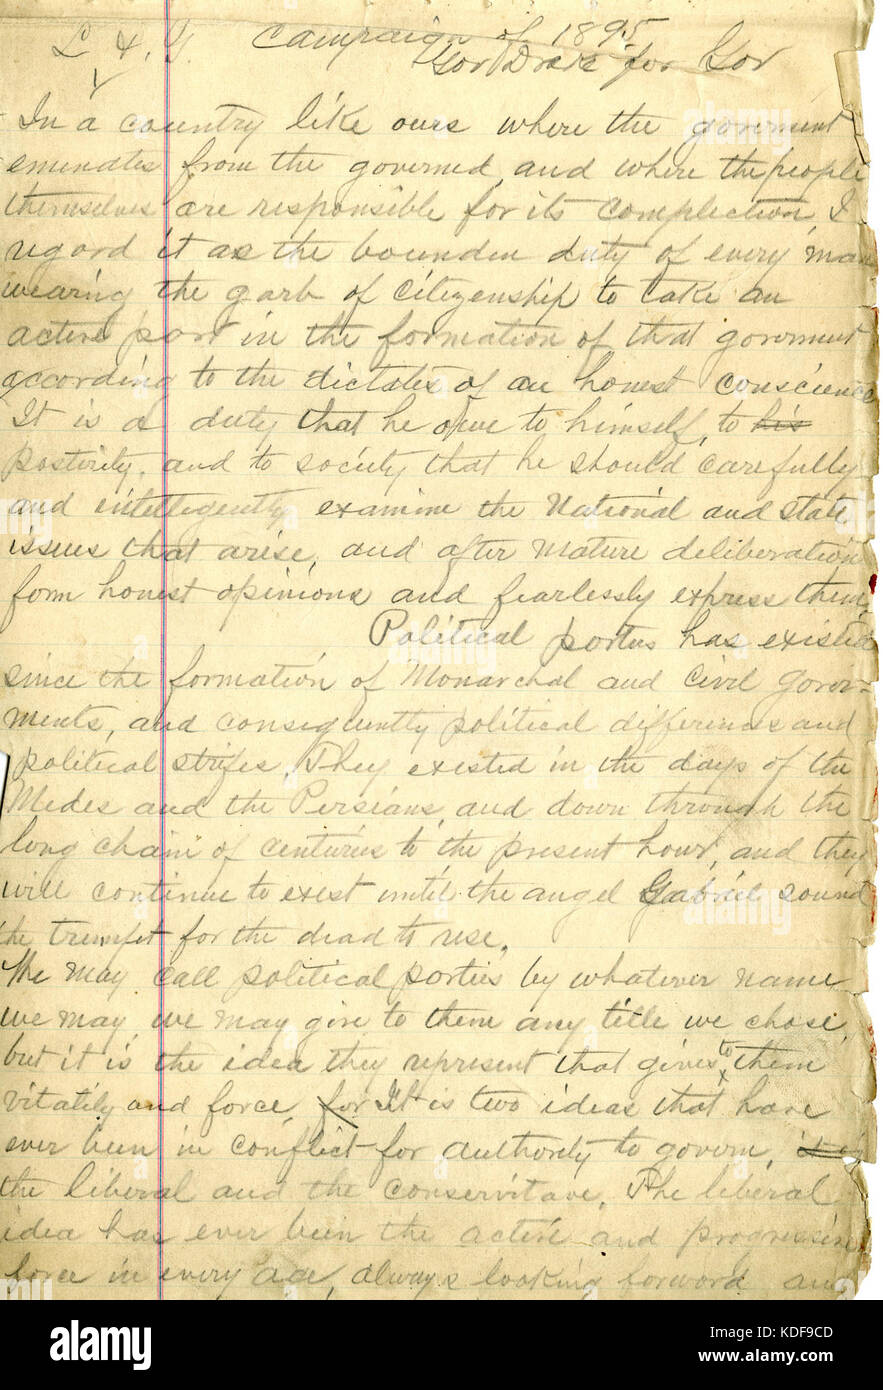 Campaign of 1895
L & G. Gov Drake for Gov
In a country like ours where the goverment
eminates from the governed, and where the people
themselves are responsible for its complection, I
regard it as the bounden duty of every man
wearing the garb of citizenship to take an
active part in the formation of that goverment
according to the dictates of an honest conscience
It is a duty that he owe to himself, to his
posterity, and to society that he should carefully
and intellegently examine the National and state
issues that arise, and after mature deliberation
form honest opinions and fearlessly express them.
Political parties has existed
since the formation of Monarchal and civil gover-
ments, and consequently political differences and
political strifes. They existed in the days of the
Medes and the Persians, and down through the
long chain of centuries to the present hour, and they
will continue to exist until the angel Gabriel sound
the trumpet for the dead to rise.
We may call political parties by whatever name
we may, we may give to them any title we chose,
but it is the idea they represent that gives to them
vitatily and force, for It is two ideas that have
ever been in conflict for authority to govern, it is
the liberal and the conservitave. The liberal
idea has ever been the active and progressive
force in every age, always looking forward and
alamy
Image ID: KDF9CD
www.alamy.com